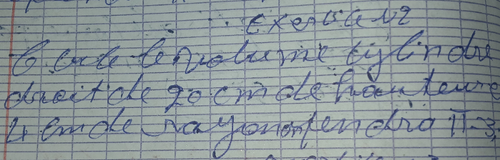 Exercice N2
le volume cylindre
droit de 20 cm de hauteure
4 cm de rayon on pendra π=3